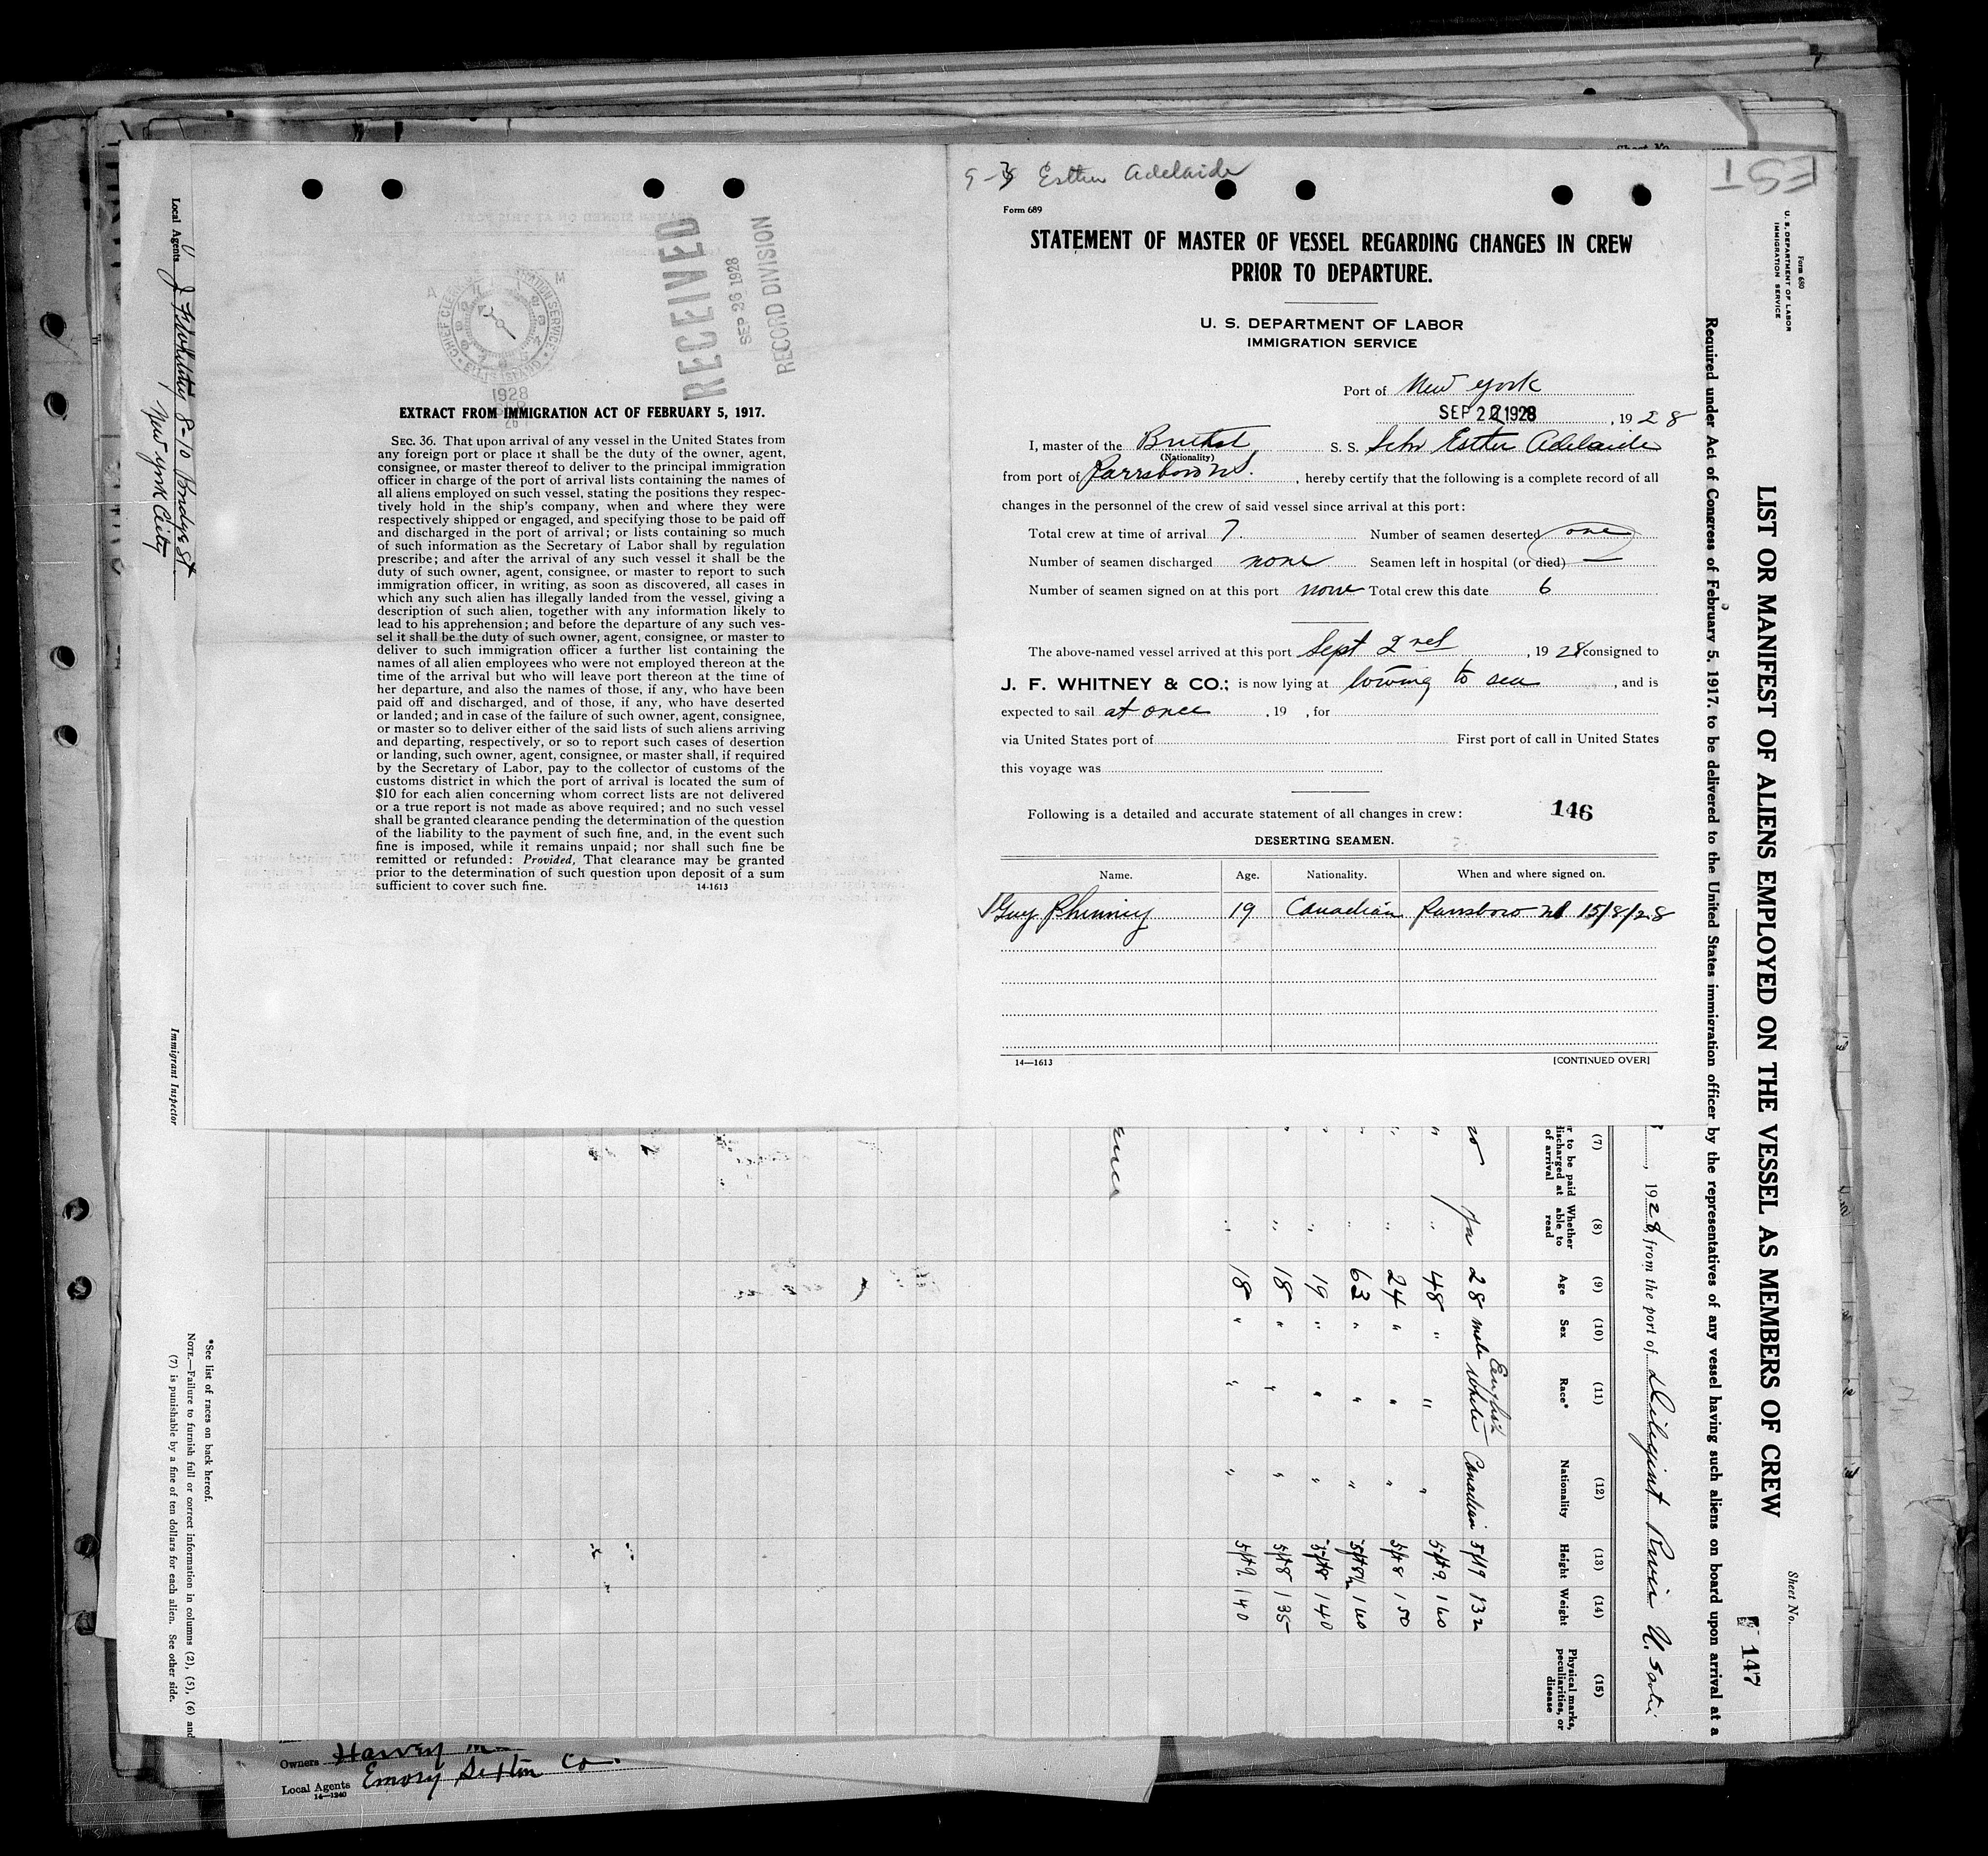 9-3 Esther Adelaide
Form 689
STATEMENT OF MASTER OF VESSEL REGARDING CHANGES IN CREW
PRIOR TO DEPARTURE.
U. S. DEPARTMENT OF LABOR
IMMIGRATION SERVICE
Port of New York
SEP 1928, 1928
I, master of the S. S. Schr Esther Adelaide
(Nationality)
from port of Parrsboro N.S., hereby certify that the following is a complete record of all
changes in the personnel of the crew of said vessel since arrival at this port:
Total crew at time of arrival 7. Number of seamen deserted one
Number of seamen discharged none Seamen left in hospital (or died) —
Number of seamen signed on at this port none Total crew this date 6
The above-named vessel arrived at this port Sept 2nd, 1928 consigned to
J. F. WHITNEY & CO.; is now lying at towing to sea, and is
expected to sail at once, 19 , for
via United States port of First port of call in United States
this voyage was
Following is a detailed and accurate statement of all changes in crew: 146
DESERTING SEAMEN.
Name. Age. Nationality. When and where signed on.
Guy Phinney 19 Canadian Parrsboro NS 15/8/28
14—1613 [CONTINUED OVER]
RECEIVED
SEP 26 1928
RECORD DIVISION
CHIEF CLERK IMMIGRATION SERVICE
ELLIS ISLAND
1928
SEP
26
EXTRACT FROM IMMIGRATION ACT OF FEBRUARY 5, 1917.
SEC. 36. That upon arrival of any vessel in the United States from
any foreign port or place it shall be the duty of the owner, agent,
consignee, or master thereof to deliver to the principal immigration
officer in charge of the port of arrival lists containing the names of
all aliens employed on such vessel, stating the positions they respec-
tively hold in the ship's company, when and where they were
respectively shipped or engaged, and specifying those to be paid off
and discharged in the port of arrival; or lists containing so much
of such information as the Secretary of Labor shall by regulation
prescribe; and after the arrival of any such vessel it shall be the
duty of such owner, agent, consignee, or master to report to such
immigration officer, in writing, as soon as discovered, all cases in
which any such alien has illegally landed from the vessel, giving a
description of such alien, together with any information likely to
lead to his apprehension; and before the departure of any such ves-
sel it shall be the duty of such owner, agent, consignee, or master to
deliver to such immigration officer a further list containing the
names of all alien employees who were not employed thereon at the
time of the arrival but who will leave port thereon at the time of
her departure, and also the names of those, if any, who have been
paid off and discharged, and of those, if any, who have deserted
or landed; and in case of the failure of such owner, agent, consignee,
or master so to deliver either of the said lists of such aliens arriving
and departing, respectively, or so to report such cases of desertion
or landing, such owner, agent, consignee, or master shall, if required
by the Secretary of Labor, pay to the collector of customs of the
customs district in which the port of arrival is located the sum of
$10 for each alien concerning whom correct lists are not delivered
or a true report is not made as above required; and no such vessel
shall be granted clearance pending the determination of the question
of the liability to the payment of such fine, and, in the event such
fine is imposed, while it remains unpaid; nor shall such fine be
remitted or refunded: Provided, That clearance may be granted
prior to the determination of such question upon deposit of a sum
sufficient to cover such fine. 14-1613
Form 680
U. S. DEPARTMENT OF LABOR
IMMIGRATION SERVICE
Sheet No.
LIST OR MANIFEST OF ALIENS EMPLOYED ON THE VESSEL AS MEMBERS OF CREW
147
Required under Act of Congress of February 5, 1917, to be delivered to the United States immigration officer by the representatives of any vessel having such aliens on board upon arrival at a
, 1928, from the port of Diligent River N. Scotia
(7) (8) (9) (10) (11) (12) (13) (14) (15)
r to be paid discharged at of arrival Whether able to read Age Sex Race* Nationality Height Weight Physical marks, peculiarities, or disease
no 28 male English white Canadian 5ft9 132
" " 48 " " " 5ft9 160
" " 24 " " " 5ft8 150
" " 63 " " " 5ft8½ 160
" " 19 " " " 5ft8 140
" " 18 " " " 5ft8 135
" " 18 " " " 5ft9 140
*See list of races on back hereof.
NOTE.—Failure to furnish full or correct information in columns (2), (5), (6) and
(7) is punishable by a fine of ten dollars for each alien. See other side.
Local Agents J F Whitney 8-10 Bridge St
New York City
Immigrant Inspector
Owners Harvey
Local Agents Emory Sexton Co.
14—1240